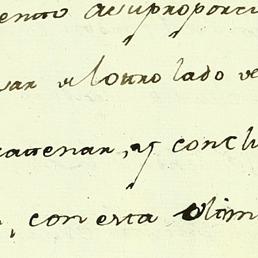 ento asuproporci
var el otro lado ve
catenar, y conclu
, con esta olim